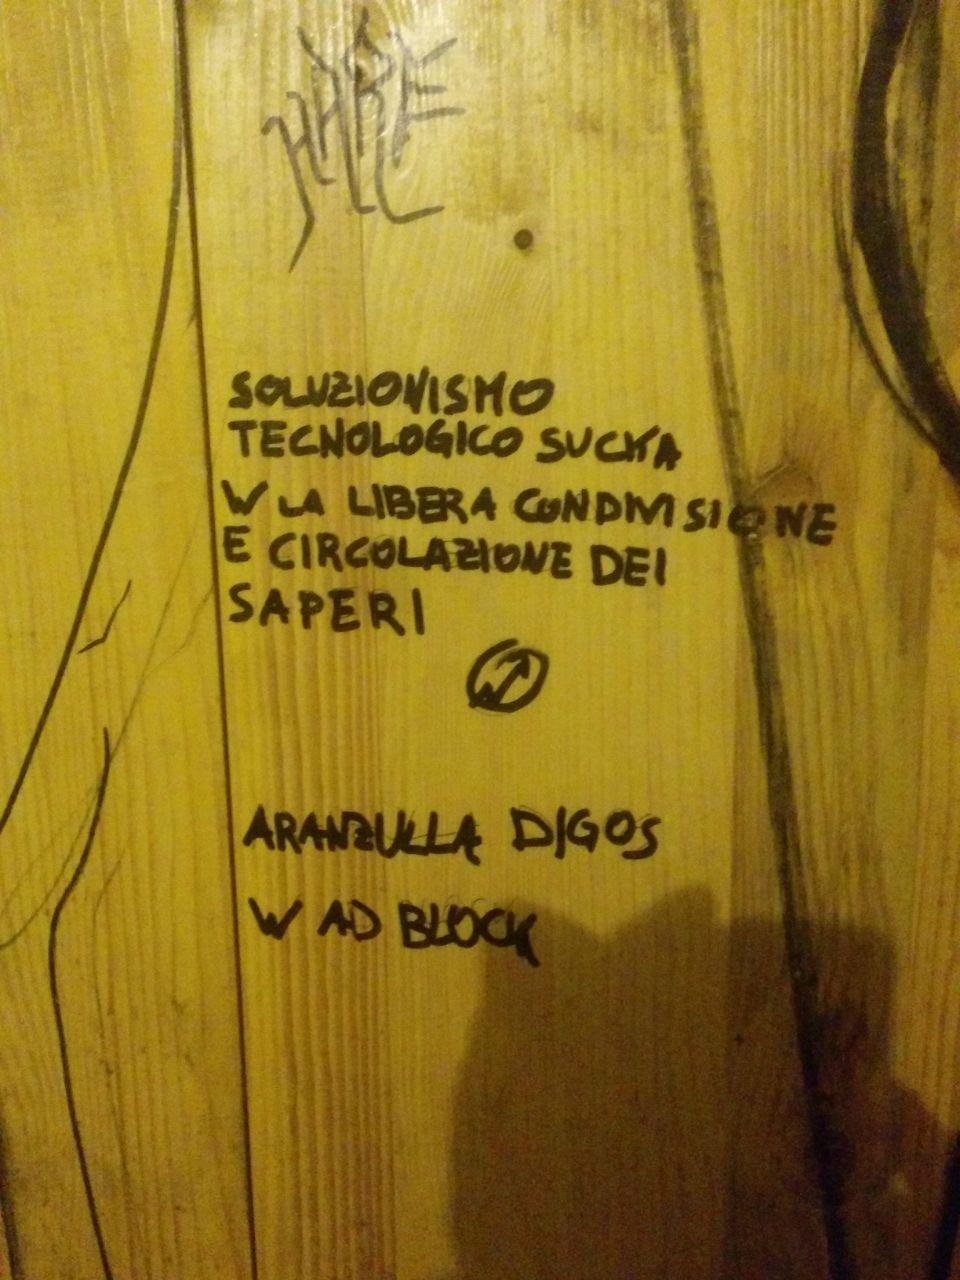 SOLUZIONISMO
TECNOLOGICO SUCKA
W LA LIBERA CONDIVISIONE
E CIRCOLAZIONE DEI
SAPERI
ARANZULLA DIGOS
W AD BLOCK